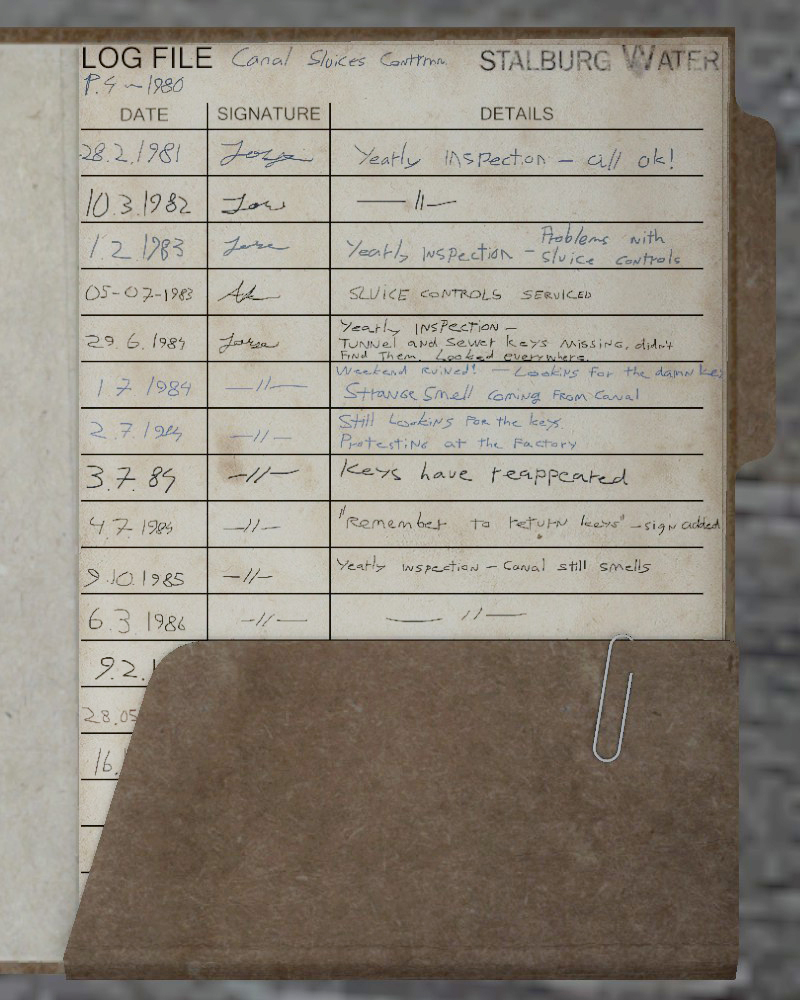 LOG FILE Canal Sluices STALBURG WATER
P.4 ~ 1980
DATE SIGNATURE DETAILS
28.2.1981 Yearly Inspection - all ok!
10.3.1982 —〃—
1.2 1983 Yearly Inspection - Problems with
sluice controls
05-07-1983 SLUICE CONTROLS SERVICED
29.6.1984 Yearly INSPECTION -
TUNNEL and Sewer keys missing, didn't
Find Them. Looked everywhere.
1 7 1984 —〃— Weekend ruined! - Looking for the damn key
Strange Smell coming From Canal
2.7.1984 —〃— Still Looking For the keys
Protesting at the Factory
3.7.84 —〃— Keys have reappeared
4.7 1984 —〃— "Remember to return keys" - sign added
9.10.1985 —〃— Yearly inspection - Canal still smells
6.3 1986 —〃— —〃—
9.2.
28.05
16.